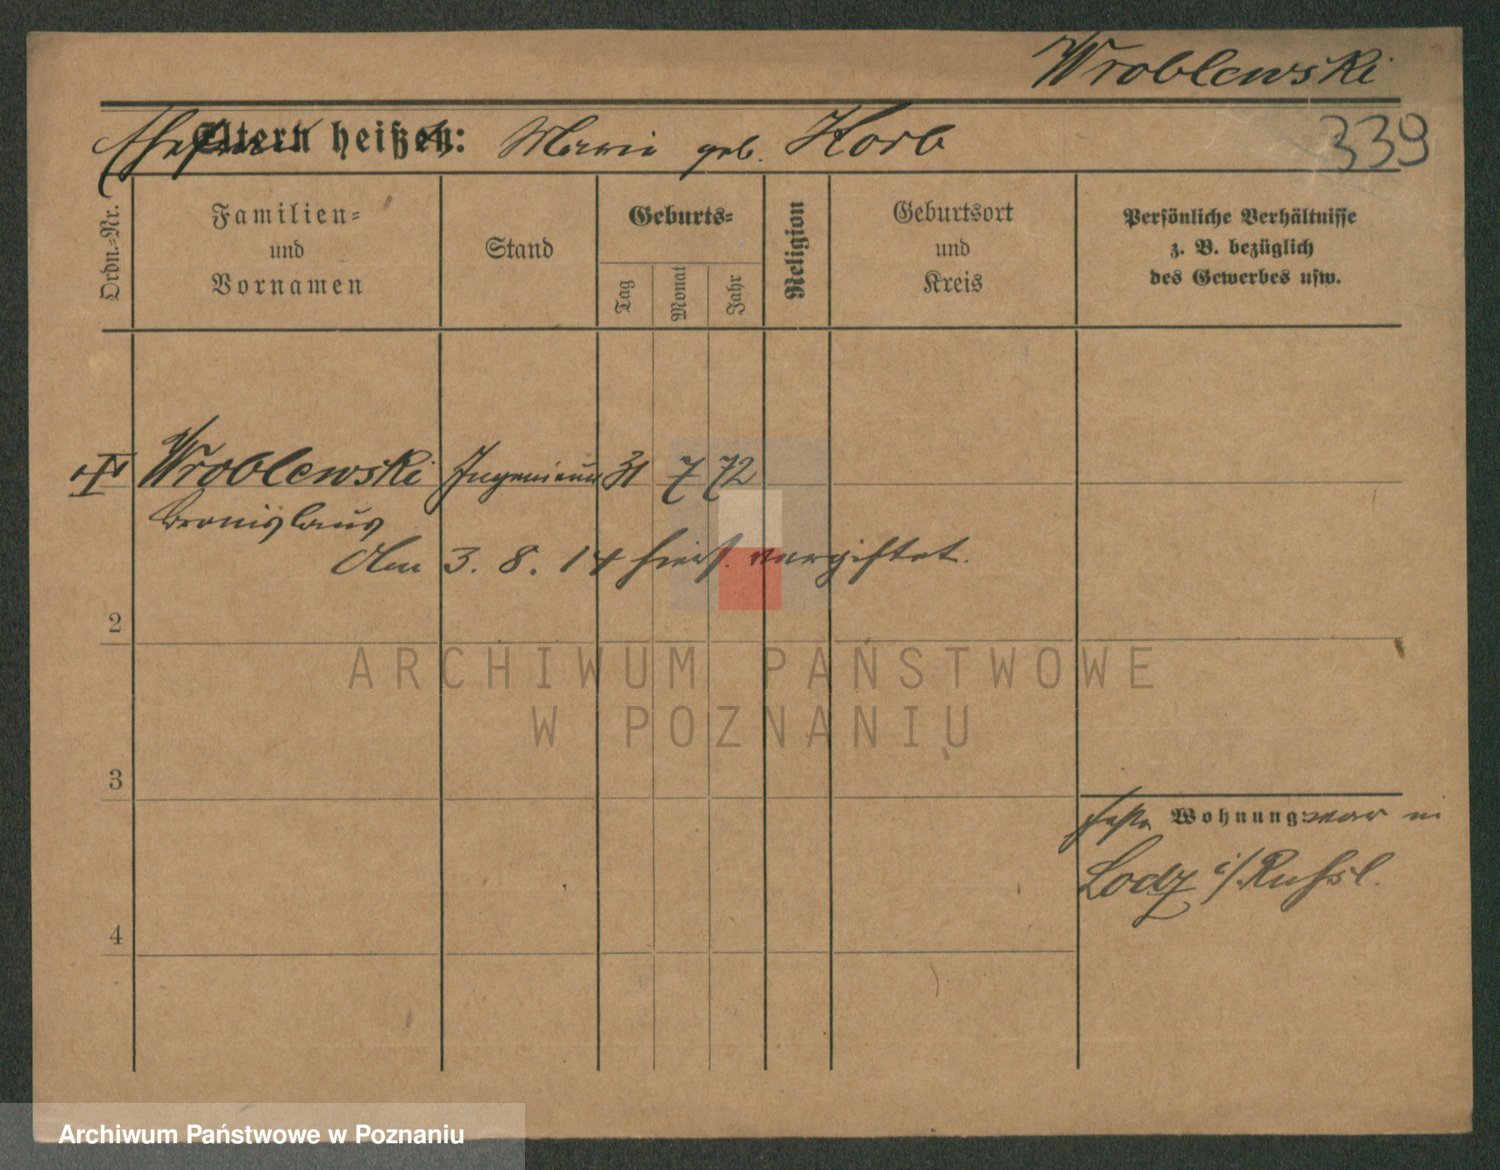 Wroblewski
Eltern heißen: Marie geb. Korb
339
Ordn.-Nr.
Familien-
und
Vornamen
Stand
Geburts-
Tag
Monat
Jahr
Religion
Geburtsort
und
Kreis
Persönliche Verhältnisse
z. B. bezüglich
des Gewerbes usw.
Wroblewski Ingenieur 31 7 72
Bronislaus
Am 3. 8. 14 hiers. vergiftet.
2
ARCHIWUM PAŃSTWOWE
W POZNANIU
3
feste Wohnung: war in
Lodz i/Rußl.
4
Archiwum Państwowe w Poznaniu